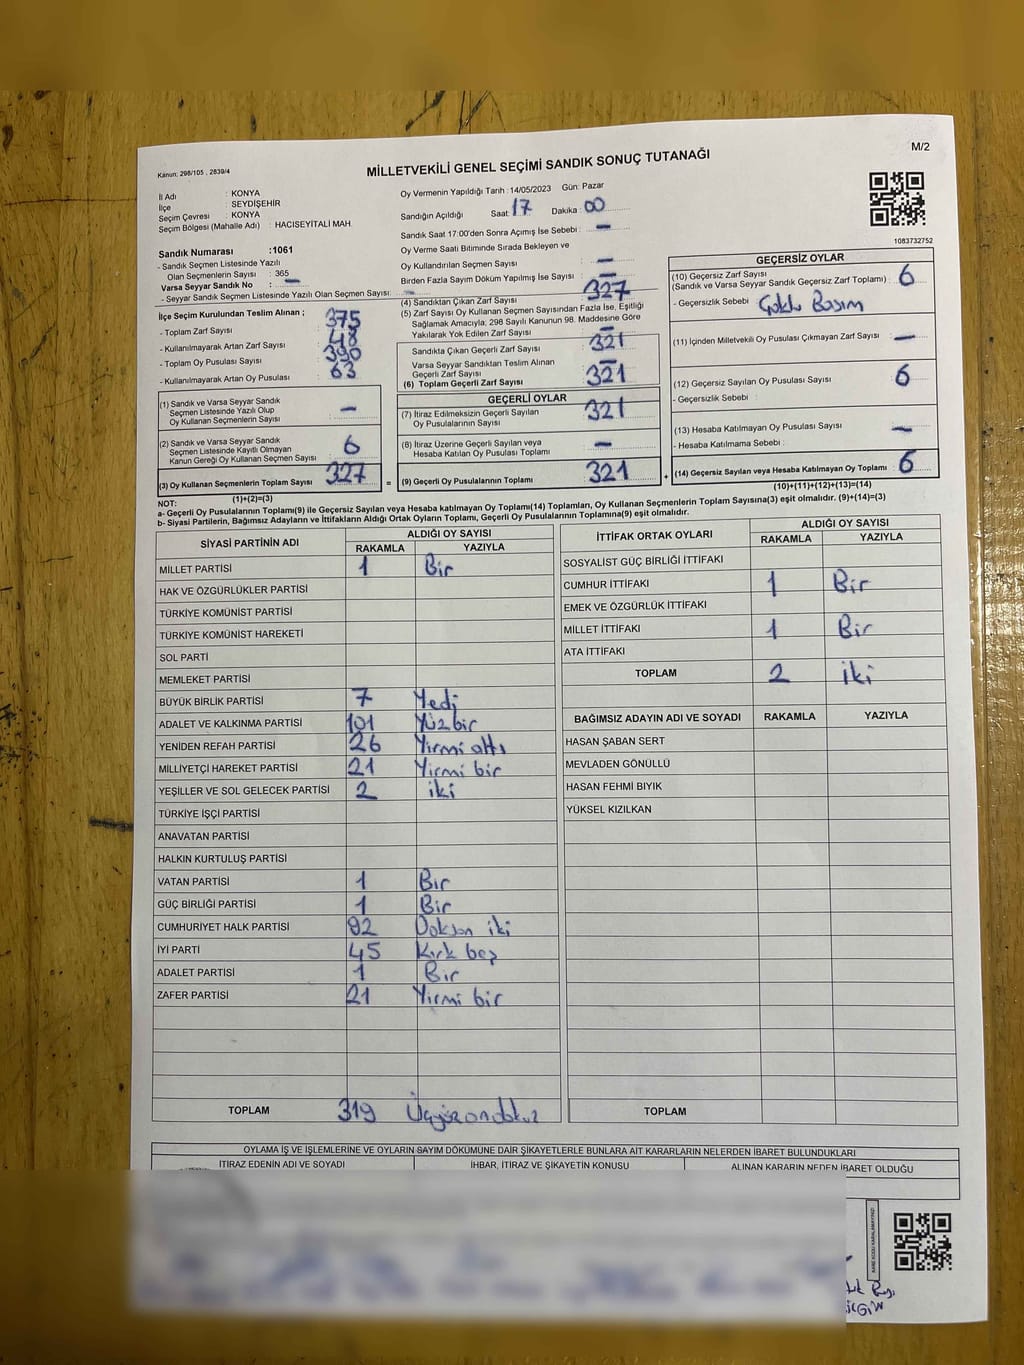 M/2
Kanun: 298/105 , 2839/4
MİLLETVEKİLİ GENEL SEÇİMİ SANDIK SONUÇ TUTANAĞI
İl Adı : KONYA
İlçe : SEYDİŞEHİR
Seçim Çevresi : KONYA
Seçim Bölgesi (Mahalle Adı) : HACISEYİTALİ MAH.
Sandık Numarası :1061
- Sandık Seçmen Listesinde Yazılı
Olan Seçmenlerin Sayısı : 365
Varsa Seyyar Sandık No : —
- Seyyar Sandık Seçmen Listesinde Yazılı Olan Seçmen Sayısı: —
İlçe Seçim Kurulundan Teslim Alınan ;
- Toplam Zarf Sayısı : 375
- Kullanılmayarak Artan Zarf Sayısı : 48
- Toplam Oy Pusulası Sayısı : 390
- Kullanılmayarak Artan Oy Pusulası : 63
(1) Sandık ve Varsa Seyyar Sandık
Seçmen Listesinde Yazılı Olup
Oy Kullanan Seçmenlerin Sayısı —
(2) Sandık ve Varsa Seyyar Sandık
Seçmen Listesinde Kayıtlı Olmayan
Kanun Gereği Oy Kullanan Seçmen Sayısı 6
(3) Oy Kullanan Seçmenlerin Toplam Sayısı 327
(1)+(2)=(3)
Oy Vermenin Yapıldığı Tarih : 14/05/2023 Gün: Pazar
Sandığın Açıldığı Saat : 17 Dakika : 00
Sandık Saat 17:00'den Sonra Açımış İse Sebebi : —
Oy Verme Saati Bitiminde Sırada Bekleyen ve
Oy Kullandırılan Seçmen Sayısı : —
Birden Fazla Sayım Döküm Yapılmış İse Sayısı : —
(4) Sandıktan Çıkan Zarf Sayısı : 327
(5) Zarf Sayısı Oy Kullanan Seçmen Sayısından Fazla İse, Eşitliği
Sağlamak Amacıyla; 298 Sayılı Kanunun 98. Maddesine Göre
Yakılarak Yok Edilen Zarf Sayısı : —
Sandıkta Çıkan Geçerli Zarf Sayısı : 321
Varsa Seyyar Sandıktan Teslim Alınan
Geçerli Zarf Sayısı : —
(6) Toplam Geçerli Zarf Sayısı : 321
GEÇERLİ OYLAR
(7) İtiraz Edilmeksizin Geçerli Sayılan
Oy Pusulalarının Sayısı : 321
(8) İtiraz Üzerine Geçerli Sayılan veya
Hesaba Katılan Oy Pusulası Toplamı : —
= (9) Geçerli Oy Pusulalarının Toplamı : 321 +
1083732752
GEÇERSİZ OYLAR
(10) Geçersiz Zarf Sayısı
(Sandık ve Varsa Seyyar Sandık Geçersiz Zarf Toplamı) : 6
- Geçersizlik Sebebi : Çoklu Basım
(11) İçinden Milletvekili Oy Pusulası Çıkmayan Zarf Sayısı : —
(12) Geçersiz Sayılan Oy Pusulası Sayısı : 6
- Geçersizlik Sebebi :
(13) Hesaba Katılmayan Oy Pusulası Sayısı : —
- Hesaba Katılmama Sebebi :
(14) Geçersiz Sayılan veya Hesaba Katılmayan Oy Toplamı : 6
(10)+(11)+(12)+(13)=(14)
NOT:
a- Geçerli Oy Pusulalarının Toplamı(9) ile Geçersiz Sayılan veya Hesaba katılmayan Oy Toplamı(14) Toplamları, Oy Kullanan Seçmenlerin Toplam Sayısına(3) eşit olmalıdır. (9)+(14)=(3)
b- Siyasi Partilerin, Bağımsız Adayların ve İttifakların Aldığı Ortak Oyların Toplamı, Geçerli Oy Pusulalarının Toplamına(9) eşit olmalıdır.
SİYASİ PARTİNİN ADI ALDIĞI OY SAYISI
RAKAMLA YAZIYLA
MİLLET PARTİSİ 1 Bir
HAK VE ÖZGÜRLÜKLER PARTİSİ
TÜRKİYE KOMÜNİST PARTİSİ
TÜRKİYE KOMÜNİST HAREKETİ
SOL PARTİ
MEMLEKET PARTİSİ
BÜYÜK BİRLİK PARTİSİ 7 Yedi
ADALET VE KALKINMA PARTİSİ 101 Yüzbir
YENİDEN REFAH PARTİSİ 26 Yirmi altı
MİLLİYETÇİ HAREKET PARTİSİ 21 Yirmi bir
YEŞİLLER VE SOL GELECEK PARTİSİ 2 iki
TÜRKİYE İŞÇİ PARTİSİ
ANAVATAN PARTİSİ
HALKIN KURTULUŞ PARTİSİ
VATAN PARTİSİ 1 Bir
GÜÇ BİRLİĞİ PARTİSİ 1 Bir
CUMHURİYET HALK PARTİSİ 92 Doksan iki
İYİ PARTİ 45 Kırk beş
ADALET PARTİSİ 1 Bir
ZAFER PARTİSİ 21 Yirmi bir
TOPLAM 319 Üçyüzondokuz
İTTİFAK ORTAK OYLARI ALDIĞI OY SAYISI
RAKAMLA YAZIYLA
SOSYALİST GÜÇ BİRLİĞİ İTTİFAKI
CUMHUR İTTİFAKI 1 Bir
EMEK VE ÖZGÜRLÜK İTTİFAKI
MİLLET İTTİFAKI 1 Bir
ATA İTTİFAKI
TOPLAM 2 iki
BAĞIMSIZ ADAYIN ADI VE SOYADI RAKAMLA YAZIYLA
HASAN ŞABAN SERT
MEVLADEN GÖNÜLLÜ
HASAN FEHMİ BIYIK
YÜKSEL KIZILKAN
TOPLAM
OYLAMA İŞ VE İŞLEMLERİNE VE OYLARIN SAYIM DÖKÜMÜNE DAİR ŞİKAYETLERLE BUNLARA AİT KARARLARIN NELERDEN İBARET BULUNDUKLARI
İTİRAZ EDENİN ADI VE SOYADI İHBAR, İTİRAZ VE ŞİKAYETİN KONUSU ALINAN KARARIN NEDEN İBARET OLDUĞU
KARE KODU KARALAMAYINIZ!